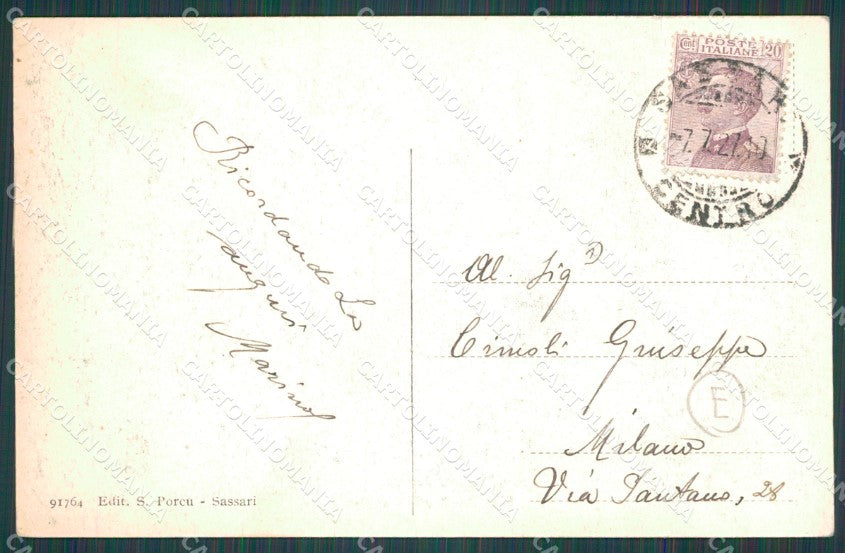 Cent POSTE 20
ITALIANE
SASSARI
7.7.27.
CENTRO
Ricordando La
auguri
Marino
Al. Sigr
Cimoli Giuseppe
E
Milano
Via Pantano, 28
91764 Edit. S. Porcu - Sassari
CARTOLINOMANIA